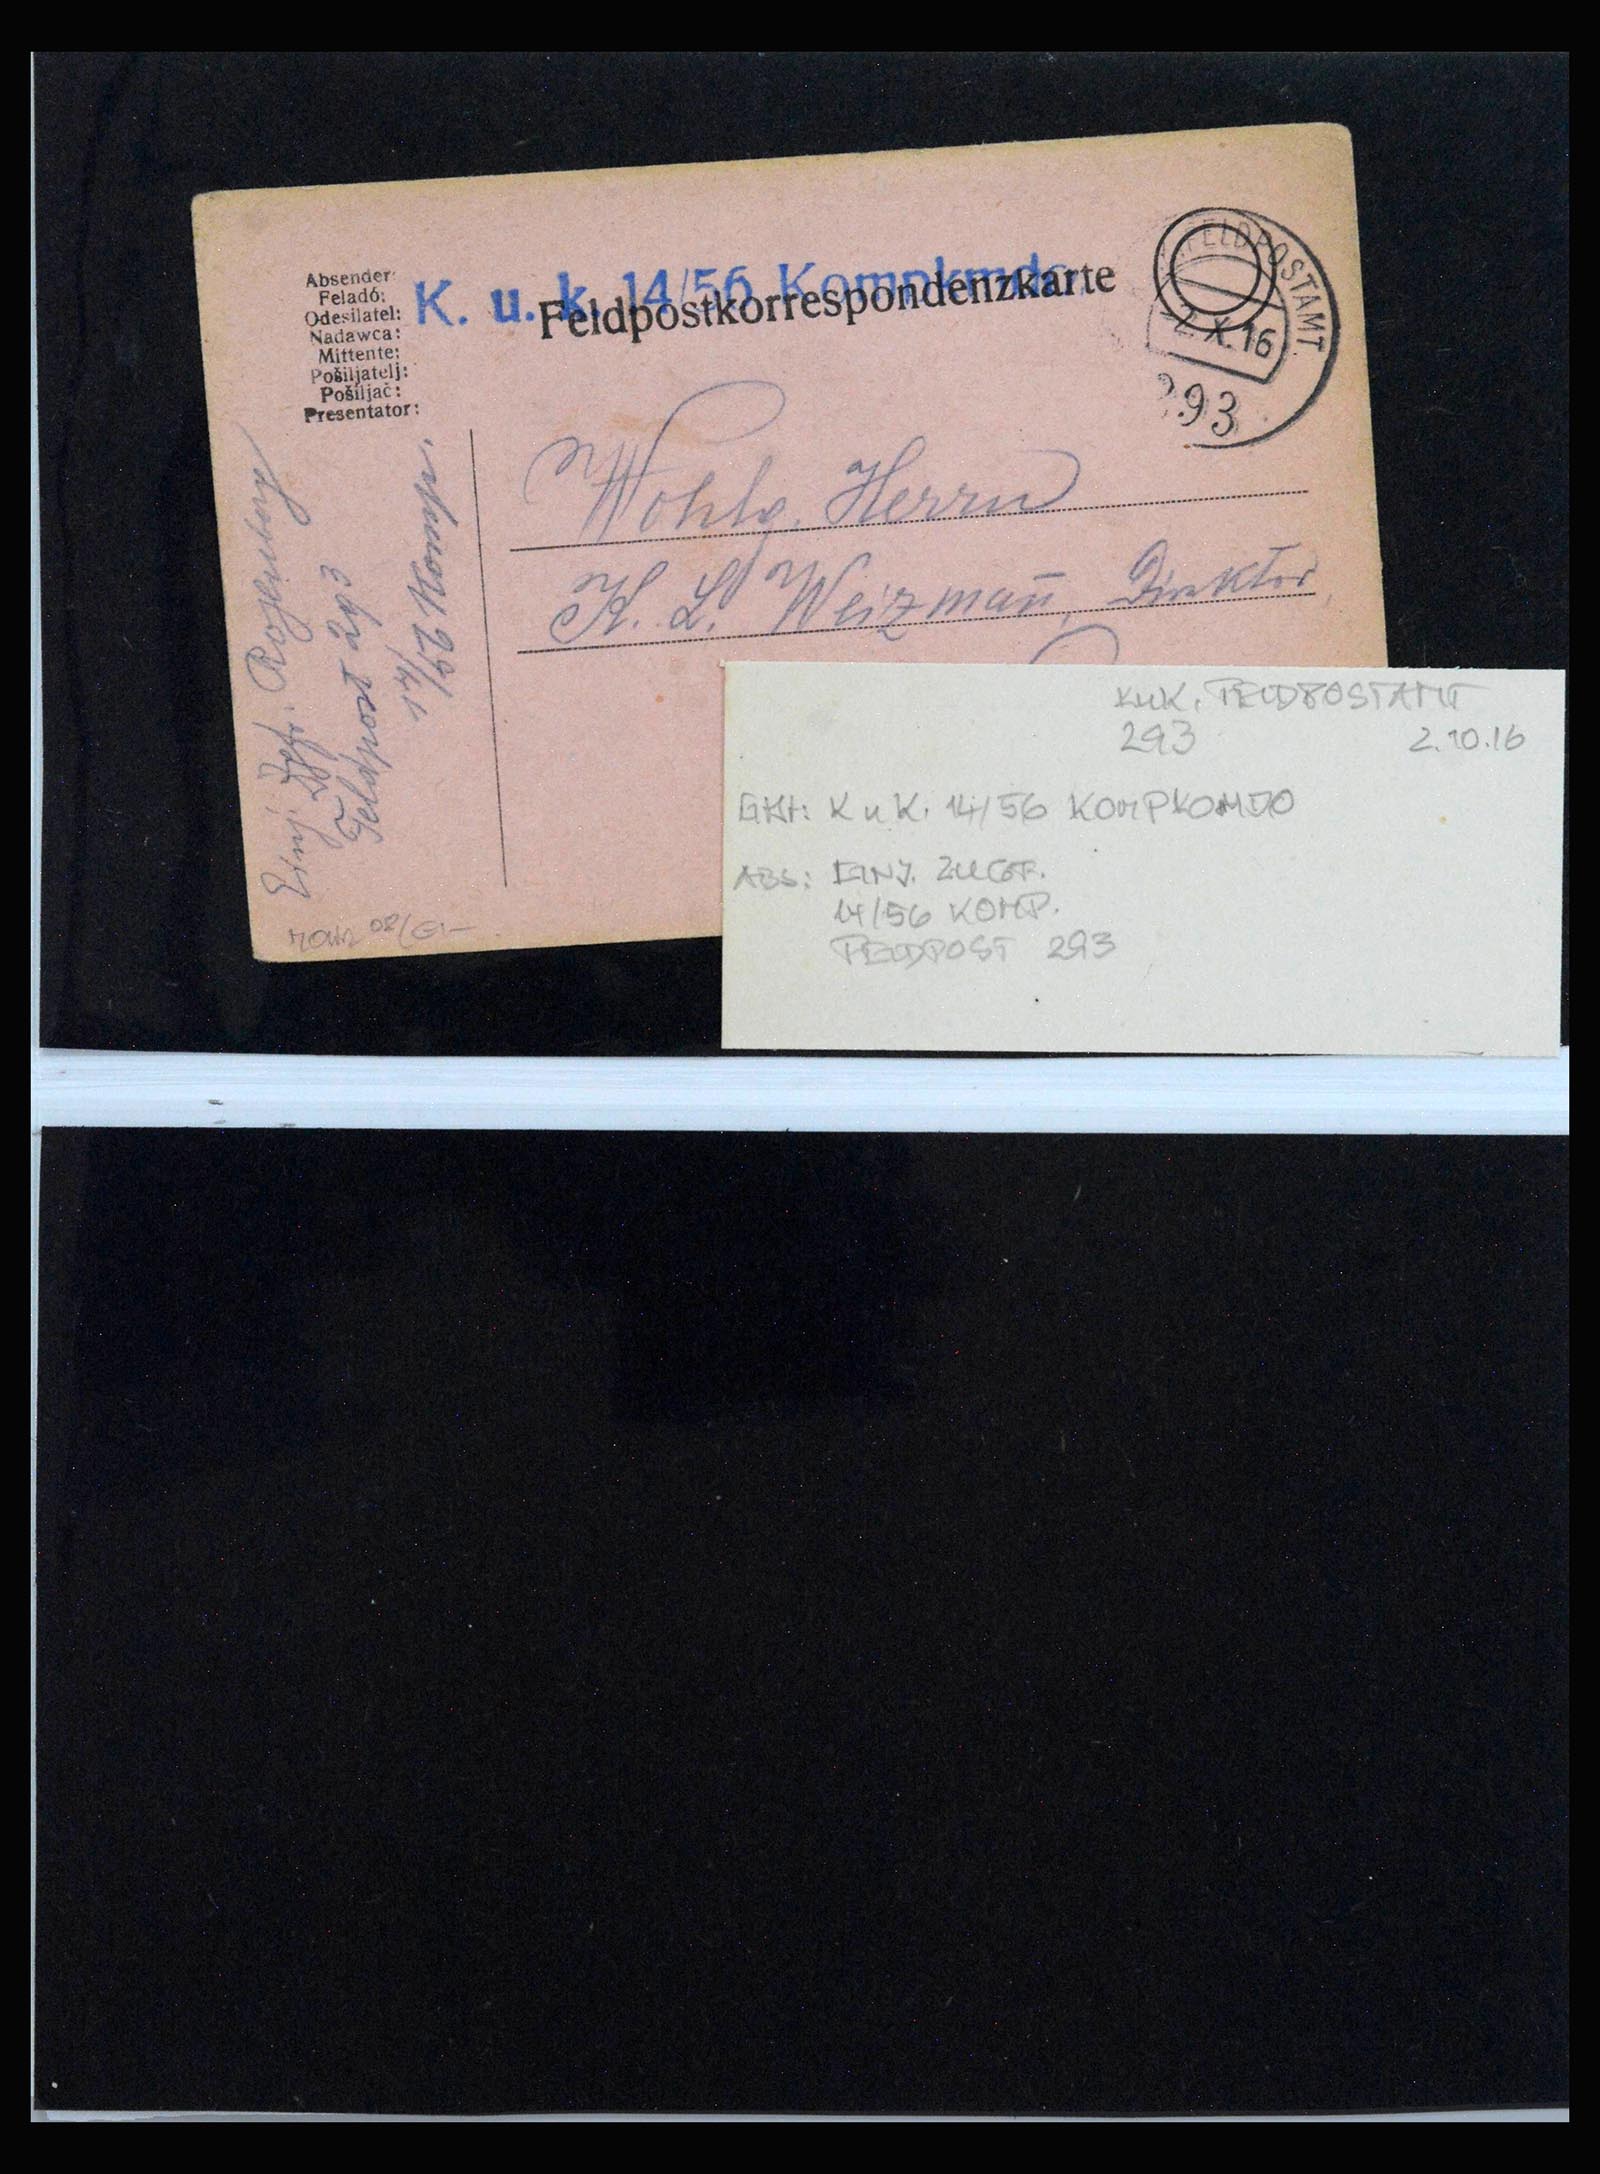 Absender:
Feladó:
Odesilatel:
Nadawca:
Mittente:
Pošiljatelj:
Pošiljač:
Presentator:
K. u. k. 14/56 Kompkmdo.
Feldpostkorrespondenzkarte
FELDPOSTAMT
2. X. 16
293
Wohlg. Herrn
K. L. Weizmañ, Direktor
Rosenburg
Feldpost 293
14/56 Komp.
K.u.K. FELDPOSTAMT
293 2.10.16
K u K. 14/56 KOMPKOMDO
ABS: EINJ. ZUGSF.
14/56 KOMP.
FELDPOST 293